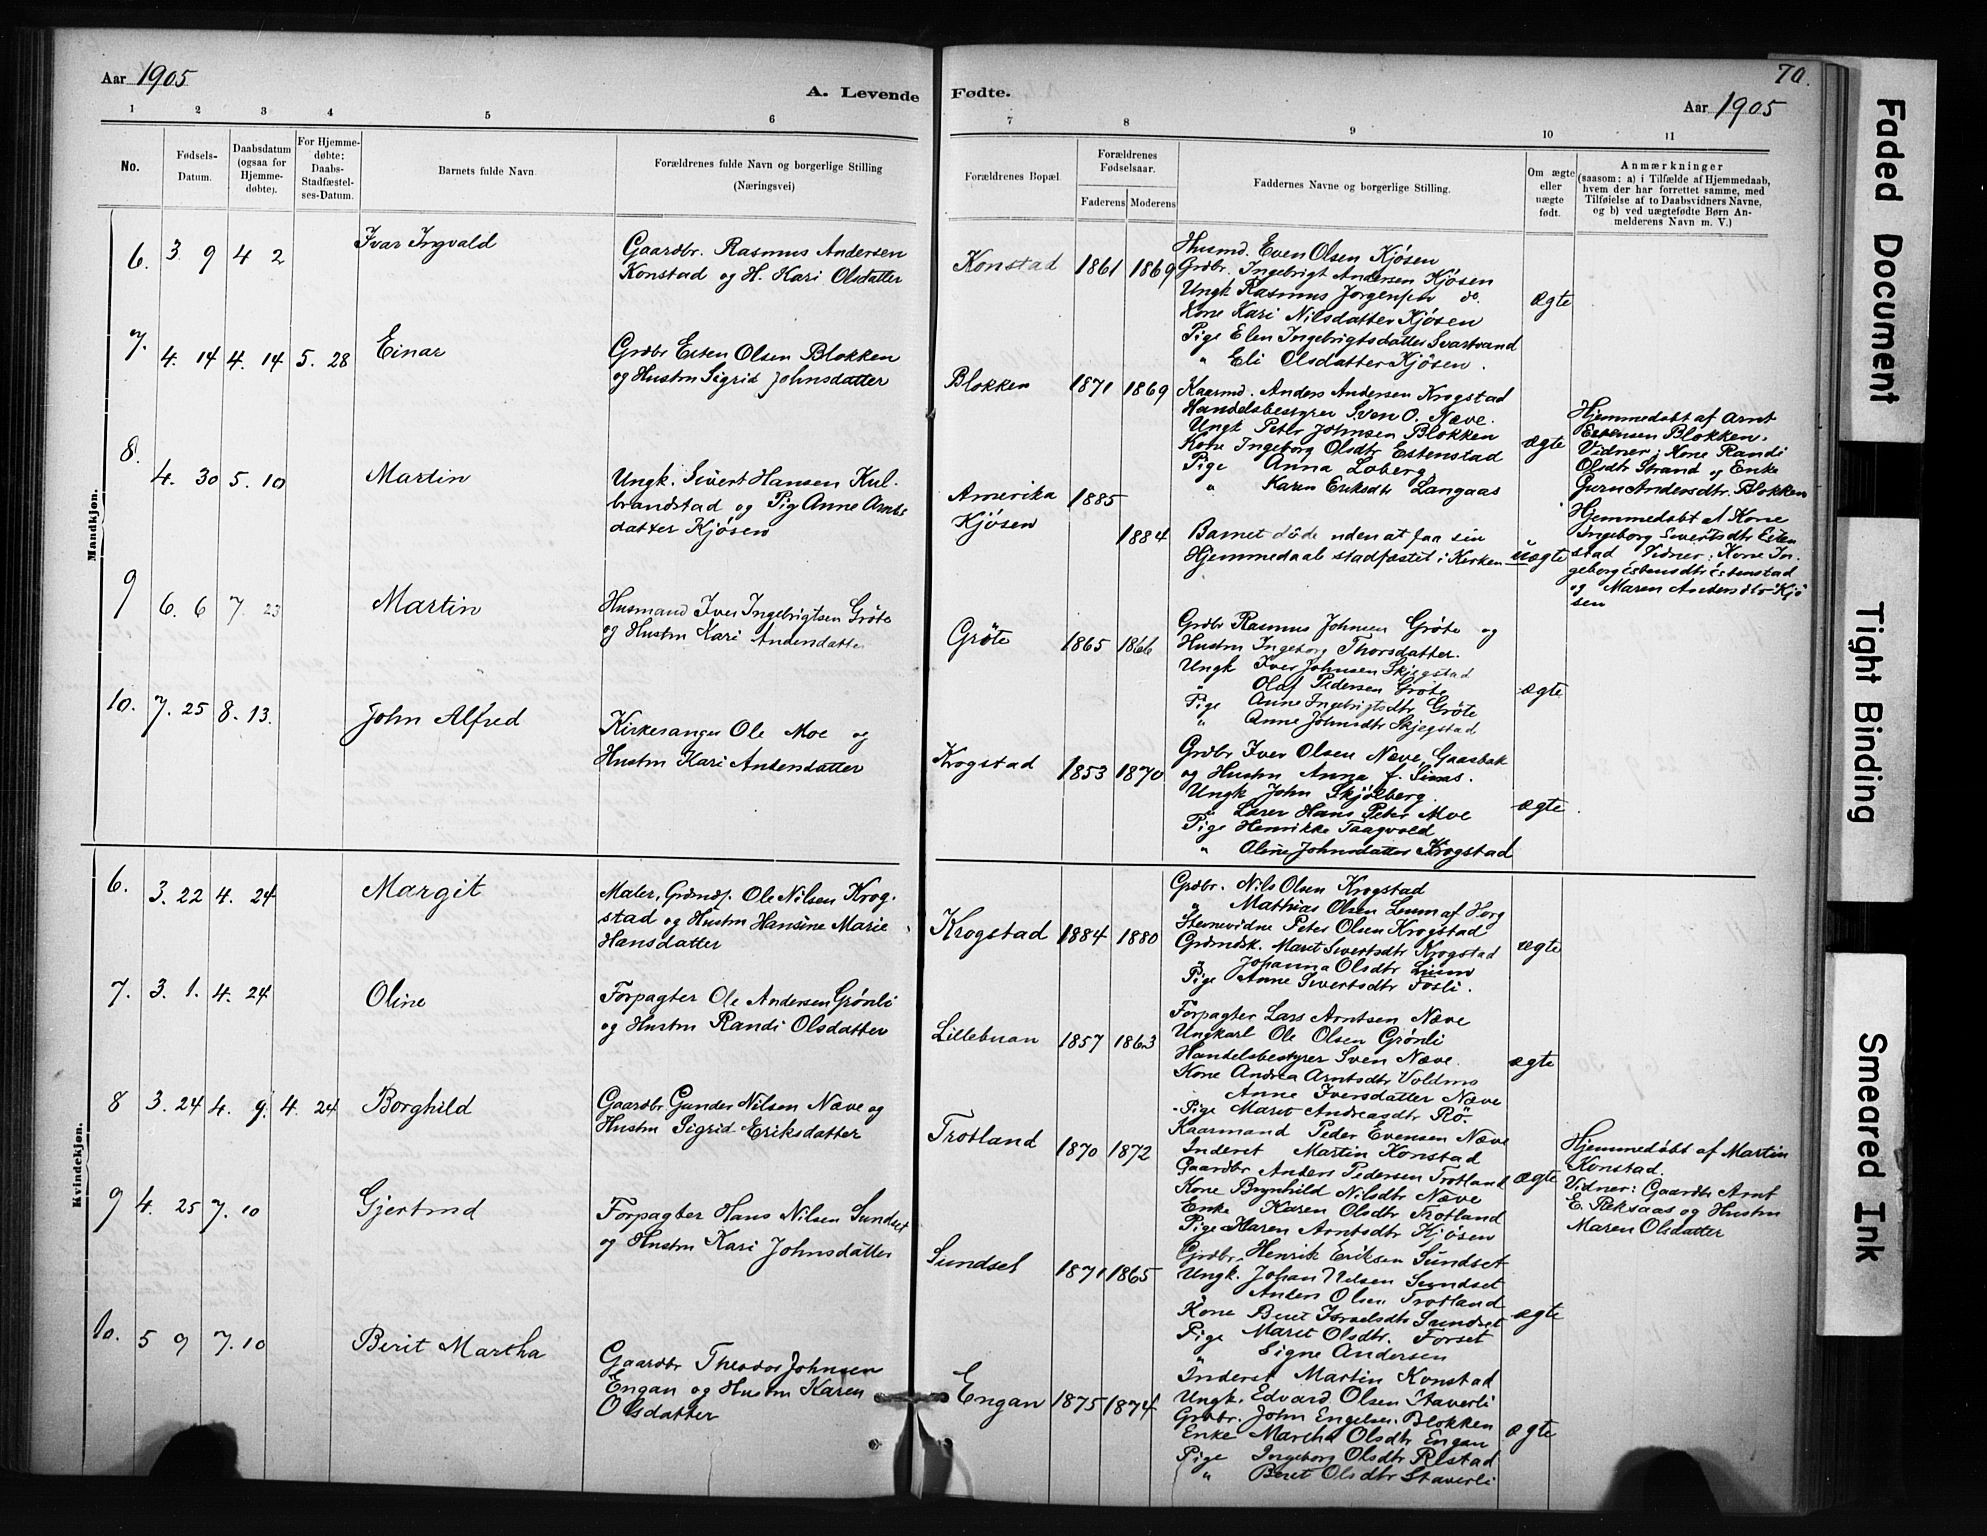 Aar 1905
A. Levende Fødte.
70.
Aar 1905
1 2 3 4 5 6 7 8 9 10 11
No.
Fødsels-
Datum.
Daabsdatum
(ogsaa for
Hjemme-
døbte).
For Hjemme-
døbte:
Daabs-
Stadfæstel-
ses-Datum.
Barnets fulde Navn
Forældrenes fulde Navn og borgerlige Stilling
(Næringsvei)
Forældrenes Bopæl.
Forældrenes
Fødselsaar.
Faderens Moderens
Faddernes Navne og borgerlige Stilling.
Om ægte
eller
uægte
født.
Anmærkninger
(saasom: a) i Tilfælde af Hjemmedaab,
hvem der har forrettet samme, med
Tilføielse af to Daabsvidners Navne,
og b) ved uægtefødte Børn An-
melderens Navn m. V.)
Mandkjøn.
6. 3 9 4 2 Ivar Ingvald
Gaardbr. Rasmus Andersen
Konstad og H. Kari Olsdatter
Konstad 1861 1869
Husmd. Even Olsen Kjøsen
Grdbr. Ingebrigt Andersen Kjøsen
Ungk Rasmus Jørgensen do.
Kone Kari Nilsdatter Kjøsen
Pige Elen Ingebrigtsdatter Svartvand
" Eli Olsdatter Kjøsen.
ægte
7. 4. 14 4. 14 5. 28 Einar
Grdbr Esten Olsen Blokken
og Hustru Sigrid Johnsdatter
Blokken 1871 1869
Kaarmd. Anders Andersen Krogstad
Handelsbestyrer Sven O. Næve.
Ungk Peter Johnsen Blokken
Kone Ingeborg Olsdtr Estenstad
Pige Anna Loberg
" Karen Eriksdtr Langaas
ægte
Hjemmedøbt af Arnt
Estensen Blokken.
Vidner; Kone Randi
Olsdtr Strand og Enke
Gurn Andersdtr. Blokken
8. 4. 30 5. 10 Martin
Ungk. Sivert Hansen Kul-
brandstad og Pig Anne Arnts
datter Kjøsen
Amerika 1885
Kjøsen 1884
Barnet døde uden at faa sin
Hjemmedaab stadfæstet i Kirken
uægte
Hjemmedøbt af Kone
Ingeborg Sivertsdtr Esten
stad Vidner: Kone In-
geborg Estensdtr Estenstad
og Maren Andersdtr Kjø
sen
9 6. 6 7. 23 Martin
Husmand Iver Ingebrigtsen Grøte
og Hustru Kari Andersdatter
Grøte 1865 1866
Grdbr Rasmus Johnsen Grøte og
Hustru Ingeborg Thorsdatter.
Ungk Iver Johnsen Skjegstad
" Olaf Pedersen Grøte
Pige Anne Ingebrigtsdtr Grøte
" Anne Johnsdtr Skjegstad
ægte
10. 7. 25 8. 13. John Alfred
Kirkesanger Ole Moe og
Hustru Kari Andersdatter
Krogstad 1853 1870
Grdbr Iver Olsen Næve, Gaasbak
og Hustru Anna f.
Ungk John Skjølberg
" Lærer Hans Peter Moe
Pige Henrikke Taagvold
" Oline Johnsdatter Krogstad
ægte
Kvindekjøn.
6. 3. 22 4. 24 Margit
Maler, Ole Nilsen Krog-
stad og Hustru Hansine Marie
Hansdatter
Krogstad 1884 1880
Grdbr. Nils Olsen Krogstad
" Mathias Olsen Luum af Horg
Stenevidne Peter Olsen Krogstad
Grdmdsk. Maret Sivertsdtr Krogstad
" Johanna Olsdtr Luum
Pige Anne Sivertsdtr Fosli.
ægte
7. 3. 1. 4. 24 Oline
Forpagter Ole Andersen Grønli
og Hustru Randi Olsdatter
Lillebuan 1857 1863
Forpagter Lars Arntsen Næve
Ungkarl Ole Olsen Grønli
Handelsbestyrer Sven Næve.
Kone Andrea Arntsdtr Voldmo
Anne Iversdatter Næve
Pige Maret Andreasdtr Rø.
ægte
8 3. 24 4. 9. 4. 24 Borghild
Gaardbr. Gunder Nilsen Næve og
Hustru Sigrid Eriksdatter
Trotland 1870 1872
Kaarmand Peder Evensen Næve
Inderst Martin Konstad
Gaardbr Anders Pedersen Trotland
Kone Brynhild Nilsdtr Næve
Enke Karen Olsdtr Trotland
Pige Maren Arntsdtr Kjøsen
ægte
Hjemmedøbt af Martin
Konstad.
Vidner: Gaardbr Arnt
E. Reksaas og Hustru
Maren Olsdatter
9 4. 25 7. 10 Gjertrud
Forpagter Hans Nilsen Sundset
og Hustru Kari Johnsdatter
Sundset 1871 1865
Grdbr. Henrik Eriksen Sundset
Ungk. Johan Nilsen Sundset
Anders Olsen Trotland
Kone Beret Israelsdtr Sundset
Pige Maret Olsdtr. Forset
" Signe Andersen
ægte
10. 5 9 7. 10 Berit Martha
Gaardbr Theodor Johnsen
Engan og Hustru Karen
Olsdatter
Engan 1875 1874
Inderst Martin Konstad
Ungk. Edvard Olsen Staverli
Grdbr. John Engelsen Blokken
Enke Martha Olsdtr Engan
Pige Ingeborg Olsdtr Restad
" Beret Olsdtr Staverli
ægte
Faded Document
Tight Binding
Smeared Ink